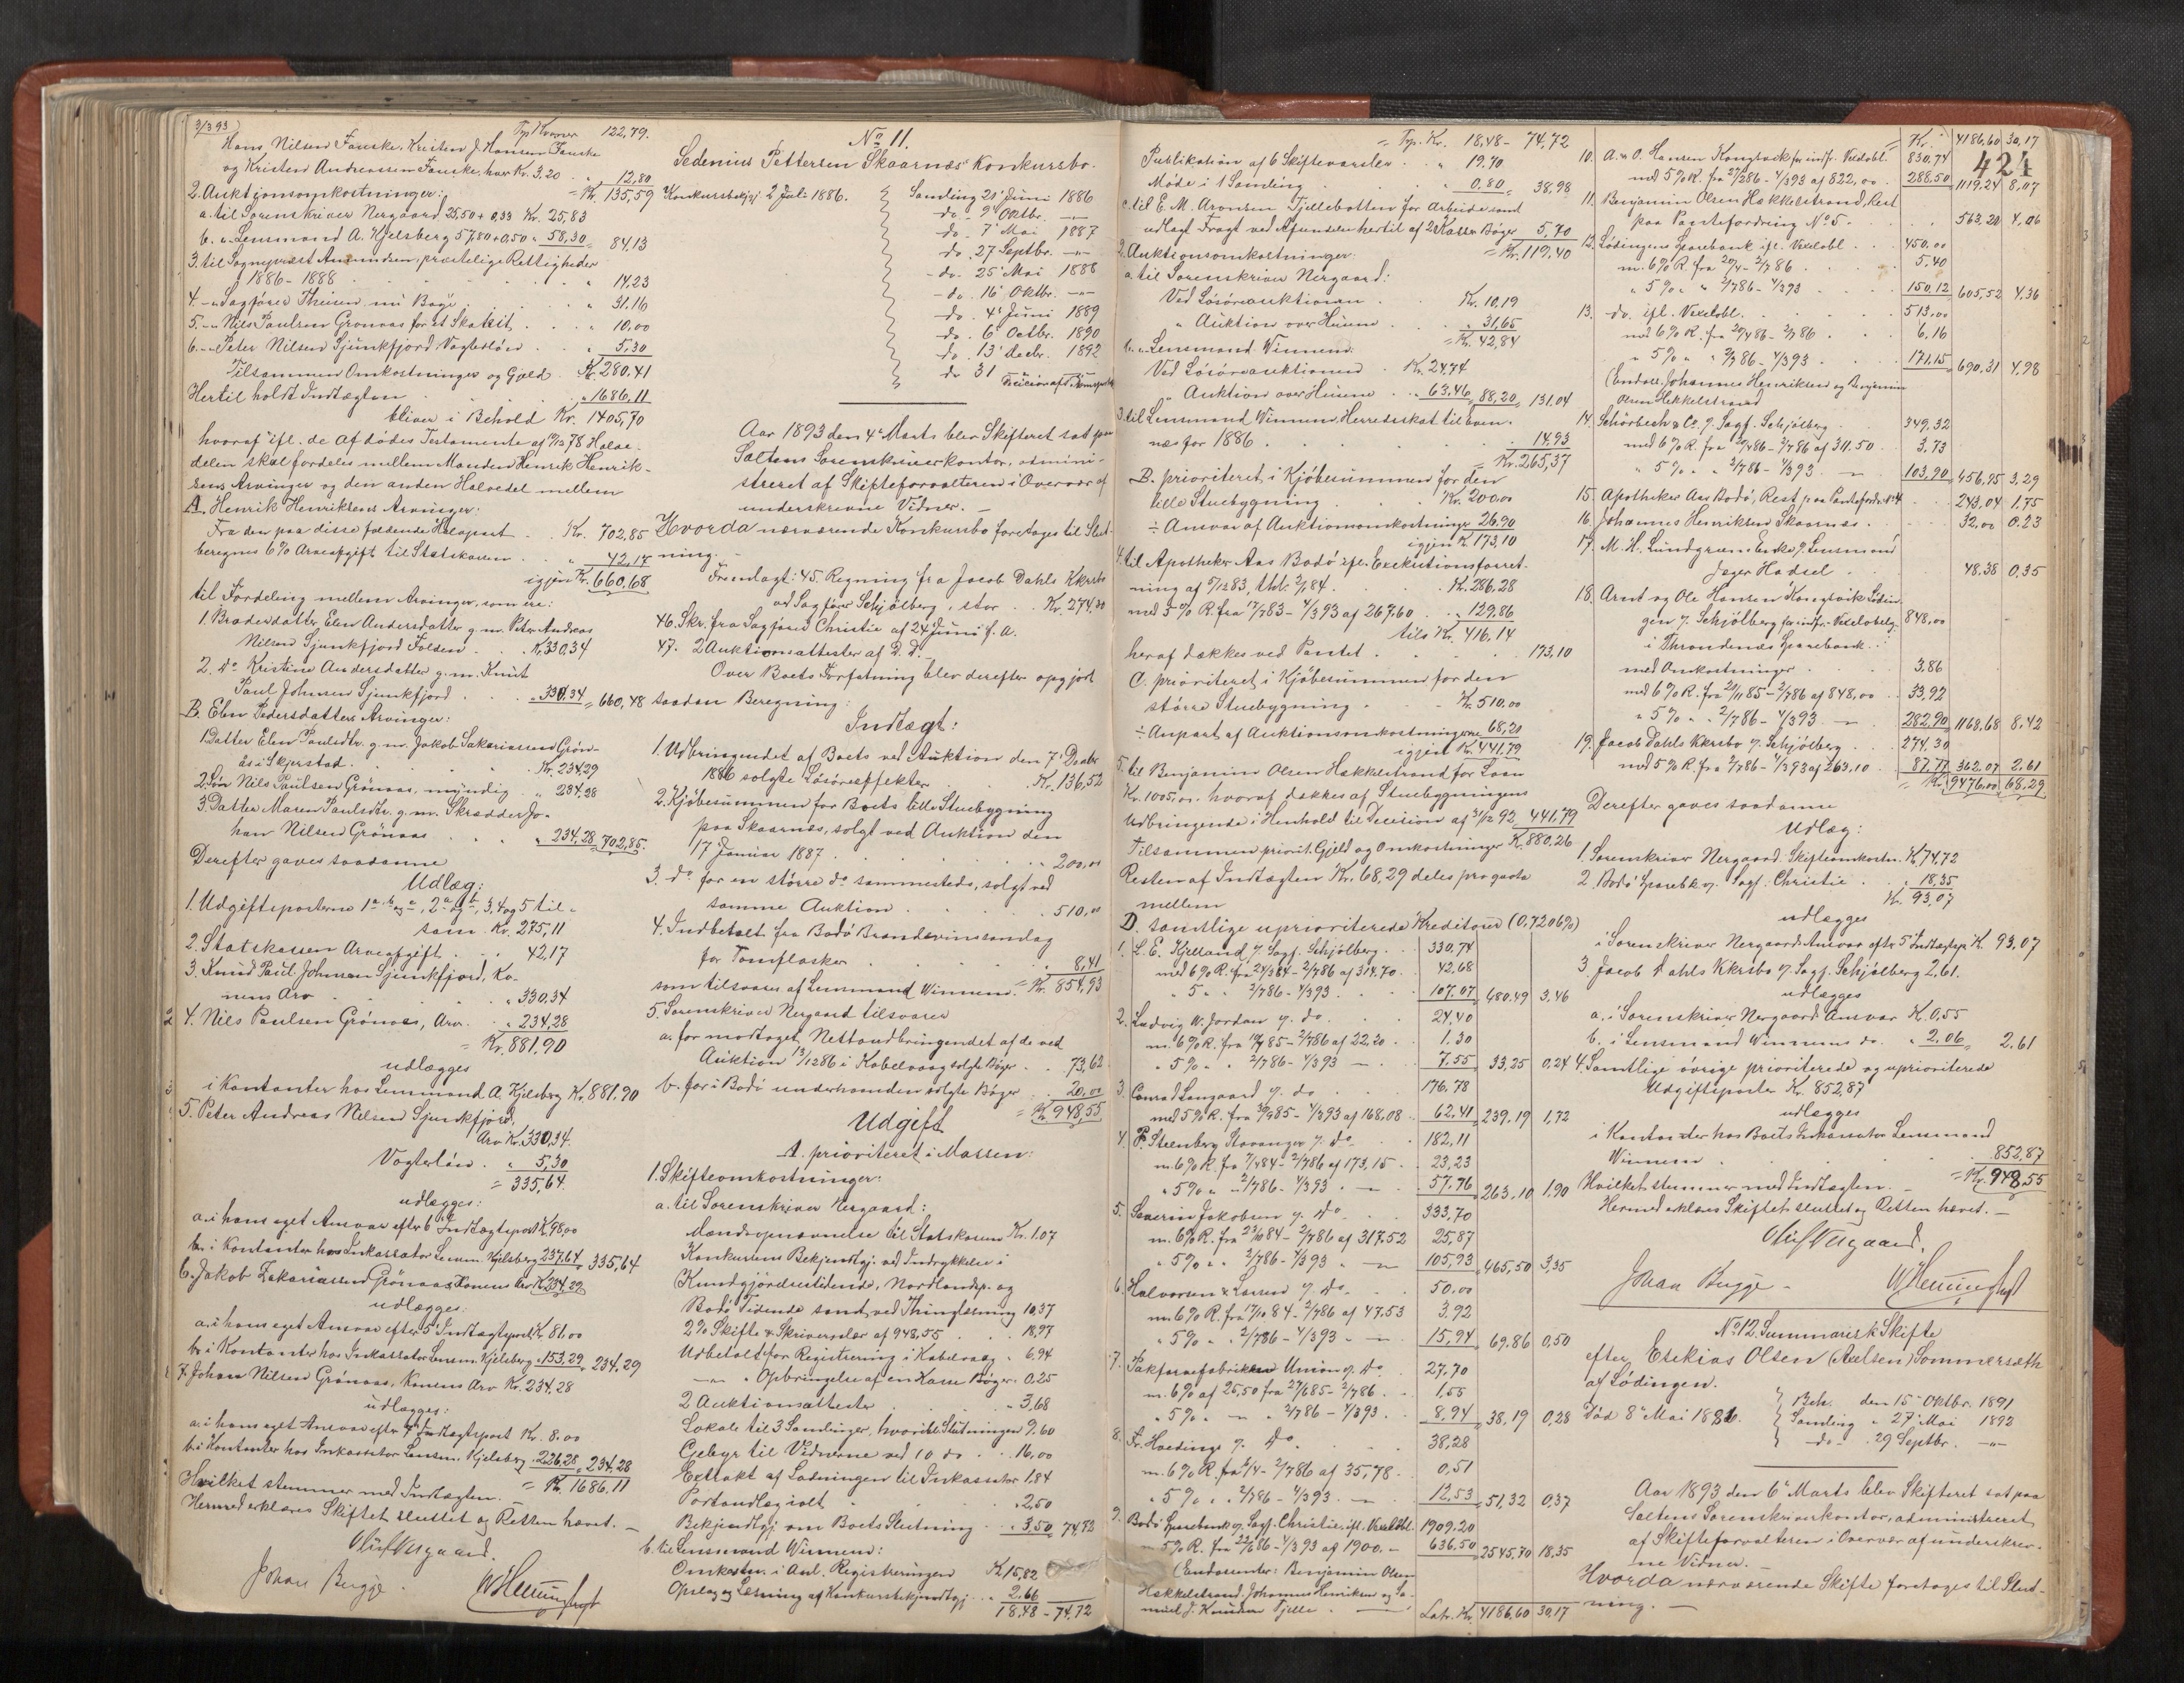 3/3 93
Trp. Kroner 122,79.
Hans Nilsen Fauske, Kristen J. Hansen Fauske
og Kristen Andreassen Fauske, hver Kr. 3.20 " 12,80
= Kr. 135,59
2. Auktionsomkostninger:
a. til Sorenskriver Nergaard 25,50 + 0,33 Kr. 25,83
b. " Lensmand A. Kjelsberg 57,80 + 0,50 " 58,30 = 84,13
3. til Sogneprest Amundsen, præstelige Rettigheder
1886-1888 " 14,23
4. -"- Sagfører Thesen nu Bøye " 31.16
5. -"- Nils Paulsen Grønaas for et Skatkit " 10,00
6. -"- Peter Nilsen Sjunkfjord Vogterløn " 5,30
Tilsammen Omkostninger og Gjæld Kr. 280.41
Hertil holdt Indtægten " 1686,11
bliver i Behold Kr. 1405,70
hvoraf ifl. de Afdødes Testamente af 9/12 78 Halv-
delen skal fordeles mellem Manden Henrik Henrik-
sens Arvinger og den anden Halvdel mellem
A. Henrik Henriksens Arvinger:
Fra den paa disse faldende Halvpart Kr. 702,85
beregnes 6% Arveafgift til Statskassen " 42,17
igjen Kr. 660,68
til Fordeling mellem Arvinger, som ere:
1. Broderdatter, Elen Andersdatter g. m. Peter Andreas
Nilsen Sjunkfjord Folden Kr. 330,34
2. do Kristine Andersdatter g. m. Knut
Paul Johnsen Sjunkfjord " 330,34 = 660,48
B. Elen Pedersdatters Arvinger:
1. Datter Elen Paulsdtr. g. m. Jakob Sakariassen Grøn-
ås i Skjerstad Kr. 234,29
2. Søn Nils Paulsen Grønaas, myndig " 234,28
3. Datter Maren Paulsdtr. g. m. Skrædder Jo-
han Nilsen Grønaas " 234,28 = 702,85.
Derefter gaves saadanne
Udlæg:
1. Udgiftsposterne 1 a, b og c, 2 a og b, 3, 4 og 5 til-
sam. Kr. 275,11
2. Statskassen Arveafgift " 42,17
3. Knud Paul Johnsen Sjunkfjord, Ko-
nens Arv " 330,34
4. Nils Paulsen Grønaas, Arv " 234,28
= Kr. 881,90
udlægges
i Kontanter hos Lensmand A. Kjelsberg Kr. 881.90
5. Peter Andreas Nilsen Sjunkfjord,
Arv Kr. 330,34.
Vogterløn " 5,30
= 335,64.
udlægges:
a. i hans eget Ansvar efter 6te Indtægtspost Kr. 98,00
b. i Kontanter hos Inkassator Lensm. Kjelsberg " 237,64 = 335,64
6. Jakob Zakariassen Grønaas, Konens Arv Kr. 234,29
udlægges:
a. i hans eget Ansvar efter 5te Indtægtspost Kr. 81.00
b. i Kontanter hos Inkassator Lensm. Kjelsberg " 153,29 = 234,29
7. Johan Nilsen Grønaas, Konens Arv Kr. 234,28
udlægges:
a. i hans eget Ansvar efter Indtægtspost Kr. 8.00
b. i Kontanter hos Inkassator Lensm. Kjelsberg " 226,28 = 234,28
= Kr. 1686.11
Hvilket stemmer med Indtægten.
Hermed erklæres Skiftet sluttet og Retten hævet. —
Oluf Nergaard.
Johan Bugge.
No 11.
Sedenius Pettersen Skaarnæs' Konkursbo.
Konkursbekjgj. 2 Juli 1886.
Samling 21' Juni 1886
- do - 9' Oktbr. —"—
- do - 7' Mai 1887
- do. 27 Septbr. —"—
- do. 25' Mai 1888
- do. 16' Oktbr. —"—
- do. 4' Juni 1889
- do. 6' Octbr. 1890
- do. 13' Decbr. 1892
do 31
Aar 1893 den 4de Marts blev Skifteret sat paa
Saltens Sorenskriverkontor, admini-
streret af Skifteforvalteren i Overvær af
underskrevne Vidner. —
Hvorda nærværende Konkursbo foretoges til Slut-
ning. —
Fremlagt: 45. Regning fra Jacob Dahls Kkrsbo
ved Sagfører Schjølberg, stor Kr. 274.30
46. Skr. fra Sagfører Christie af 24 Juni f. A.
47. 2 Auktionsattester af D. D.
Over Boets Forfatning blev derefter opgjort
saadan Beregning:
Indtægt:
1. Udbringendet af Boets ved Auktion den 7' Decbr
1886 solgte Løsøreeffekter Kr. 136,52
2. Kjøbesummen for Boets lille Stuebygning
paa Skaarnæs, solgt ved Auktion den
17 Januar 1887 " 200,00
3. do for en større do sammesteds, solgt ved
samme Auktion " 510,00
4. Indbetalt fra Bodø Brændevinssamlag
for Tomflasker " 8,41
som tilsvares af Lensmand Winnem = Kr. 854,93
5. Sorenskriver Nergaard tilsvarer
a. for modtaget Nettoudbringendet af de ved
Auktion 13/12 86 i Kabelvaag solgte Bøger " 73,62
b. for i Bodø underhaanden solgte Bøger " 20,00
= Kr. 948,55
Udgift
A. prioriteret i Massen:
1. Skifteomkostninger:
a. til Sorenskriver Nergaard:
Mændsopnævnelse til Statskassen Kr. 1.07
Konkursens Bekjendtgj. ved Indrykkelse i
Kundgjørelsestidende, Nordlandsp. og
Bodø Tidende samt ved Thinglæsning 10,37
2% Skifte & Skriverøler af 948,55 " 18,97
Udbetalt for Registrering i Kabelvaag " 6.94
—"— " Opbringelse af en Kasse Bøger " 0,25
2 Auktionsattester " 3,68
Lokale til 3 Samlinger, hvoribl. Slutningen 9.60
Gebyr til Vidnerne ved 10 do " 16,00
Extrakt af Ladningen til Inkassator 1,84
Portoudlæg ialt " 2,50
Bekjendtgj. om Boets Slutning " 3,50 = 74,72
b. til Lensmand Winnem:
Omkostn. i Anl. Registreringen Kr. 15,82
Opslag og Læsning af Konkursbekjendtgj. " 2.66
18,48 - 74,72
= Trp. Kr. 18,48 - 74,72
Publikation af 6 Skiftevarsler " 19.70
Møde i 1 Samling " 0.80 = 38,98
c. til E. M. Aronsen Tjellebotten for Arbeide samt
udlagt Fragt ved Afsendelse hertil af 2 Kasser Bøger 5,70
= Kr. 119.40
2. Auktionsomkostninger:
a. til Sorenskriver Nergaard:
Ved Løsøreauktionen Kr. 10,19
" Auktion over Husene " 31,65
= Kr. 42,84
b. " Lensmand Winnem:
Ved Løsøreauktionen Kr. 24,74
" Auktion over Husene " 63,46 = 88,20 = 131.04
3. til Lensmand Winnem, Herredsskat til Even-
næs for 1886 14,93
= Kr. 265,37
B. prioriteret i Kjøbesummen for den
lille Stuebygning Kr. 200,00
÷ Ansvar af Auktionsomkostninger 26,90
igjen Kr. 173,10
4. til Apotheker Aas Bodø ifl. Exekutionsforret-
ning af 5/12 83, thl. 2/84 Kr. 286,28
med 5% R. fra 17/7 83 - 4/3 93 af 267.60 " 129,86
tils. Kr. 416.14
heraf dækkes ved Pantet 173,10
C. prioriteret i Kjøbesummen for den
større Stuebygning Kr. 510,00
÷ Anpart af Auktionsomkostningerne 68,20
igjen Kr. 441,79
5. til Benjamin Olsen Hakkelstrand for Laan
Kr. 1005,00 hvoraf dækkes af Stuebygningens
Udbringende i Henhold til Decision af 31/12 92 441,79
Tilsammen priorit. Gjeld og Omkostninger Kr. 880,26
Resten af Indtægten Kr. 68,29 deles pro quota
mellem
D. samtlige uprioriterede Kreditorer (0,7206%)
1. L. E. Kjelland v. Sagf. Schjølberg 330,74
med 6% R. fra 24/3 84 - 2/7 86 af 314.70 42,68
" 5 " " 2/7 86 - 4/3 93 107,07 = 480,49 3,46
2. Ludvig W. Jordan v. do 24,40
m. 6% R. fra 85 - 2/7 86 af 22,20 1.30
" 5% " 2/7 86 - 4/3 93 — 7.55 33,25 0,24
3. Conrad Langaard v. do 176.78
med 5% R. fra 85 - 4/3 93 af 168,08 62,41 = 239,19 1,72
4. P. Steenberg Stavanger v. do 182,11
m. 6% R. fra 84 - 2/7 86 af 173,15 23,23
" 5% " 2/7 86 - 4/3 93 — 57,76 263,10 1,90
5. Severin Jakobsen v. do 333,70
m. 6% R. fra 84 - 2/7 86 af 317.52 25,87
" 5% " 2/7 86 - 4/3 93 — 105,93 = 465,50 3,35
6. Halvorsen & Larsen v. do 50,00
m. 6% R. fra 17/10 84 - 2/7 86 af 47.53 3.92
" 5% " 2/7 86 - 4/3 93 — 15,94 69,86 0,50
7. Pakfarvefabrikken Union v. do 27,70
m. 6% af 25,50 fra 85 - 2/7 86 1,55
" 5% — 2/7 86 - 4/3 93 8,94 = 38,19 0,28
8. Fr. Hvedinge v. do 38,28
m. 6% R. fra 2/4 - 2/7 86 af 35,78 0,51
" 5% " 2/7 86 - 4/3 93 — 12,53 = 51,32 0,37
9. Bodø Sparebank v. Sagf. Christie, ifl. Vexelobl. 1909.20
5% R. fra 86 - 4/3 93 af 1900.- 636,50 2545,70 18,35
(Endossenter: Benjamin Olsen
Hakkelstrand, Johannes Henriksen og Sa-
muel J. Knudsen Tjelle.
Latr. Kr. 4186,60 30,17
Kr. 4186,60 30,17
424
10. A. & O. Hansen Kongsvik for indfr. Vexelobl. 830,74
med 5% R. fra 27/2 86 - 4/3 93 af 822,00 288,50 1119,24 8,07
11. Benjamin Olsen Hakkelstrand, Rest
paa Pantefordring No 5. 563,20 4,06
12. Lødingens Sparebank ifl. Vexelobl. 450,00
m. 6% R. fra 20/4 - 2/7 86 5,40
" 5% " " 2/7 86 - 4/3 93 150,12 605,52 4,36
13. do. ifl. Vexelobl. 513,00
med 6% R. fra 20/4 86 - 2/7 86 6,16
" 5% " " 2/7 86 - 4/3 93 171,15 = 690,31 4,98
(Endoss. Johannes Henriksen og Benjamin
Olsen Hekkelstrand
14. Schørbech & Co. v. Sagf. Schjølberg 349,32
med 6% R. fra 20/4 86 - 2/7 86 af 311.50 3.73
" 5% " " 2/7 86 - 4/3 93 — 103,90 = 456,95 3,29
15. Apotheker Aas Bodø, Rest paa Pantefordr. No 4 243,04 1.75
16. Johannes Henriksen Skaarnæs 32,00 0.23
17. M. H. Lundgrens Enke v. Lensmand
Jæger Hadsel 48,38 0,35
18. Arnt og Ole Hansen Kongsvik Lødin-
gen v. Schjølberg for indfr. Vexelobl. 848,00
i Throndenæs Sparebank
med Omkostninger 3.86
med 6% R. fra 85 - 2/7 86 af 848,00 33,92
" 5% " " 2/7 86 - 4/3 93 — 282,90 1168,68 8,42
19. Jacob Dahls Kkrsbo v. Schjølberg 274,30
med 5% R. fra 2/7 86 - 4/3 93 af 263,10 87,77 362.07 2,61
= Kr. 9476,00 68,29
Derefter gaves saadanne
Udlæg:
1. Sorenskriver Nergaard. Skifteomkostn. Kr. 74,72
2. Bodø Sparebk v. Sagf. Christie " 18,35
Kr. 93,07
udlægges
i Sorenskriver Nergaards Ansvar efter 5te Indtægtsp. Kr. 93,07
3. Jacob Dahls Kkrsbo v. Sagf. Schjølberg 2,61.
udlægges
a. i Sorenskriver Nergaards Ansvar Kr. 0,55
b. i Lensmand Winnems do. " 2,06 = 2.61
4. Samtlige øvrige prioriterede og uprioriterede
Udgiftsposter Kr. 852,87
udlægges
i Kontanter hos Boets Inkassator Lensmand
Winnem 852,87
= Kr. 948,55
Hvilket stemmer med Indtægten. —
Hermed erklæres Skiftet sluttet og Retten hævet. —
Oluf Nergaard.
Johan Bugge -
No 12. Summarisk Skifte
efter Esekias Olsen (Axelsen) Sommersæth
af Lødingen.
Død 8' Mai 1881.
Beh. den 15' Oktbr. 1891
Samling " 27 Mai 1892
- do - 29 Septbr. —"—
Aar 1893 den 6te Marts blev Skifteret sat paa
Saltens Sorenskriverkontor, administreret
af Skifteforvalteren i Overvær af underskrev-
ne Vidner. —
Hvorda nærværende Skifte foretoges til Slut-
ning. —